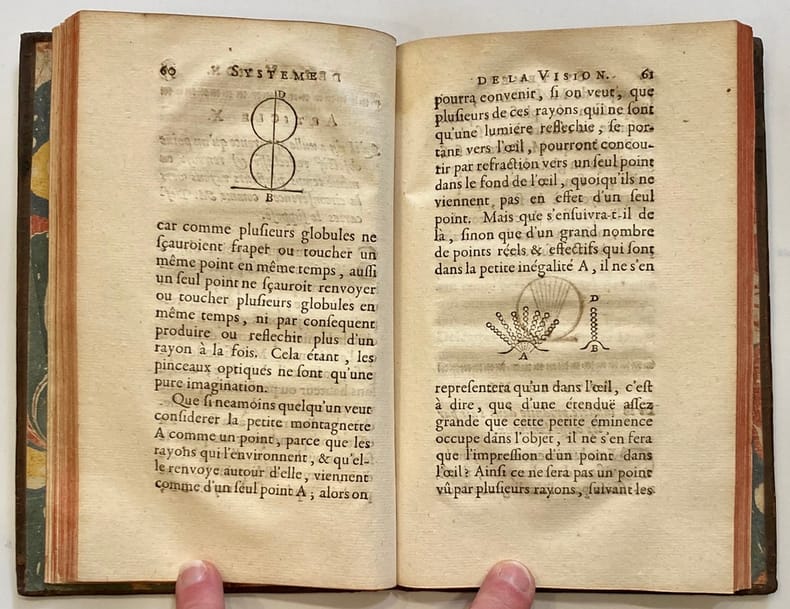 60 SYSTEME
D
B
car comme pluſieurs globules ne
ſçauroient fraper ou toucher un
même point en même temps, auſſi
un ſeul point ne ſçauroit renvoyer
ou toucher pluſieurs globules en
même temps, ni par conſequent
produire ou reflechir plus d'un
rayon à la fois. Cela étant, les
pinceaux optiques ne ſont qu'une
pure imagination.
Que ſi neamoins quelqu'un veut
conſiderer la petite montagnette
A comme un point, parce que les
rayons qui l'environnent, & qu'el-
le renvoye autour d'elle, viennent
comme d'un ſeul point A; alors on
DE LA VISION. 61
pourra convenir, ſi on veut, que
pluſieurs de ces rayons qui ne ſont
qu'une lumiere reflechie, ſe por-
tant vers l'œil, pourront concou-
rir par refraction vers un ſeul point
dans le fond de l'œil, quoiqu'ils ne
viennent pas en effet d'un ſeul
point. Mais que s'enſuivra-t-il de
là, ſinon que d'un grand nombre
de points réels & effectifs qui ſont
dans la petite inégalité A, il ne s'en
D
A B
repreſentera qu'un dans l'œil, c'eſt
à dire, que d'une étenduë aſſez
grande que cette petite éminence
occupe dans l'objet, il ne s'en fera
que l'impreſſion d'un point dans
l'œil? Ainſi ce ne ſera pas un point
vû par pluſieurs rayons, ſuivant les